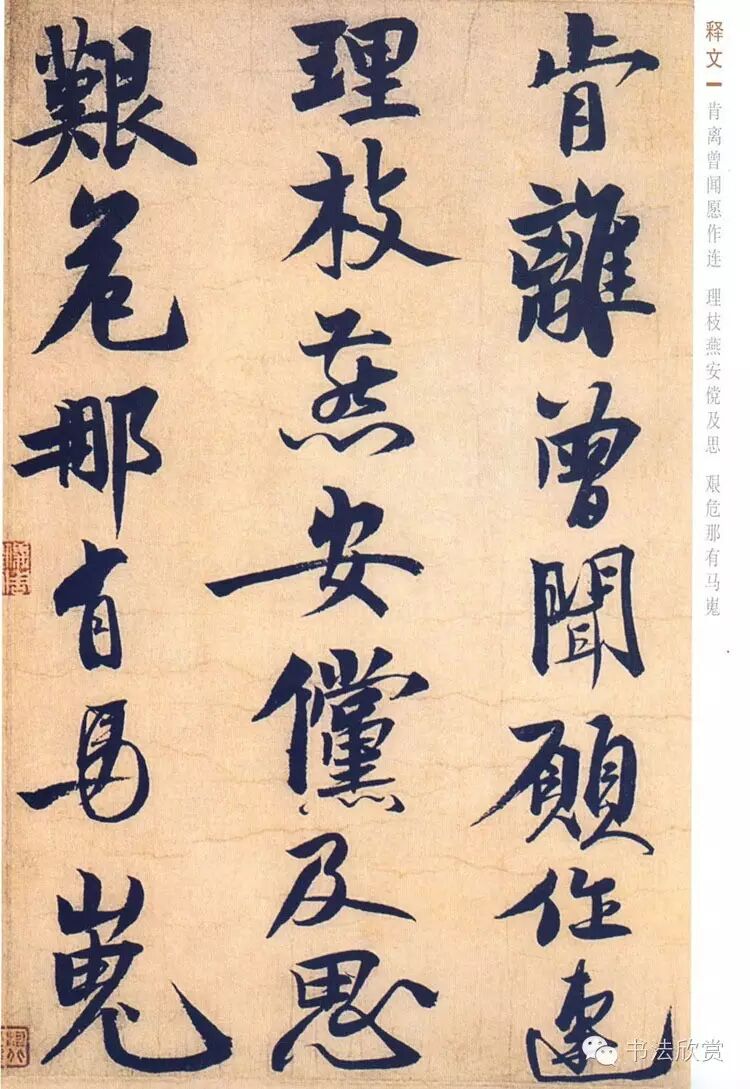 释文
肯离曾闻愿作连 理枝燕安傥及思 艰危那有马嵬
肯離曾聞願作連
理枝燕安儻及思
艱危那有馬嵬
书法欣赏